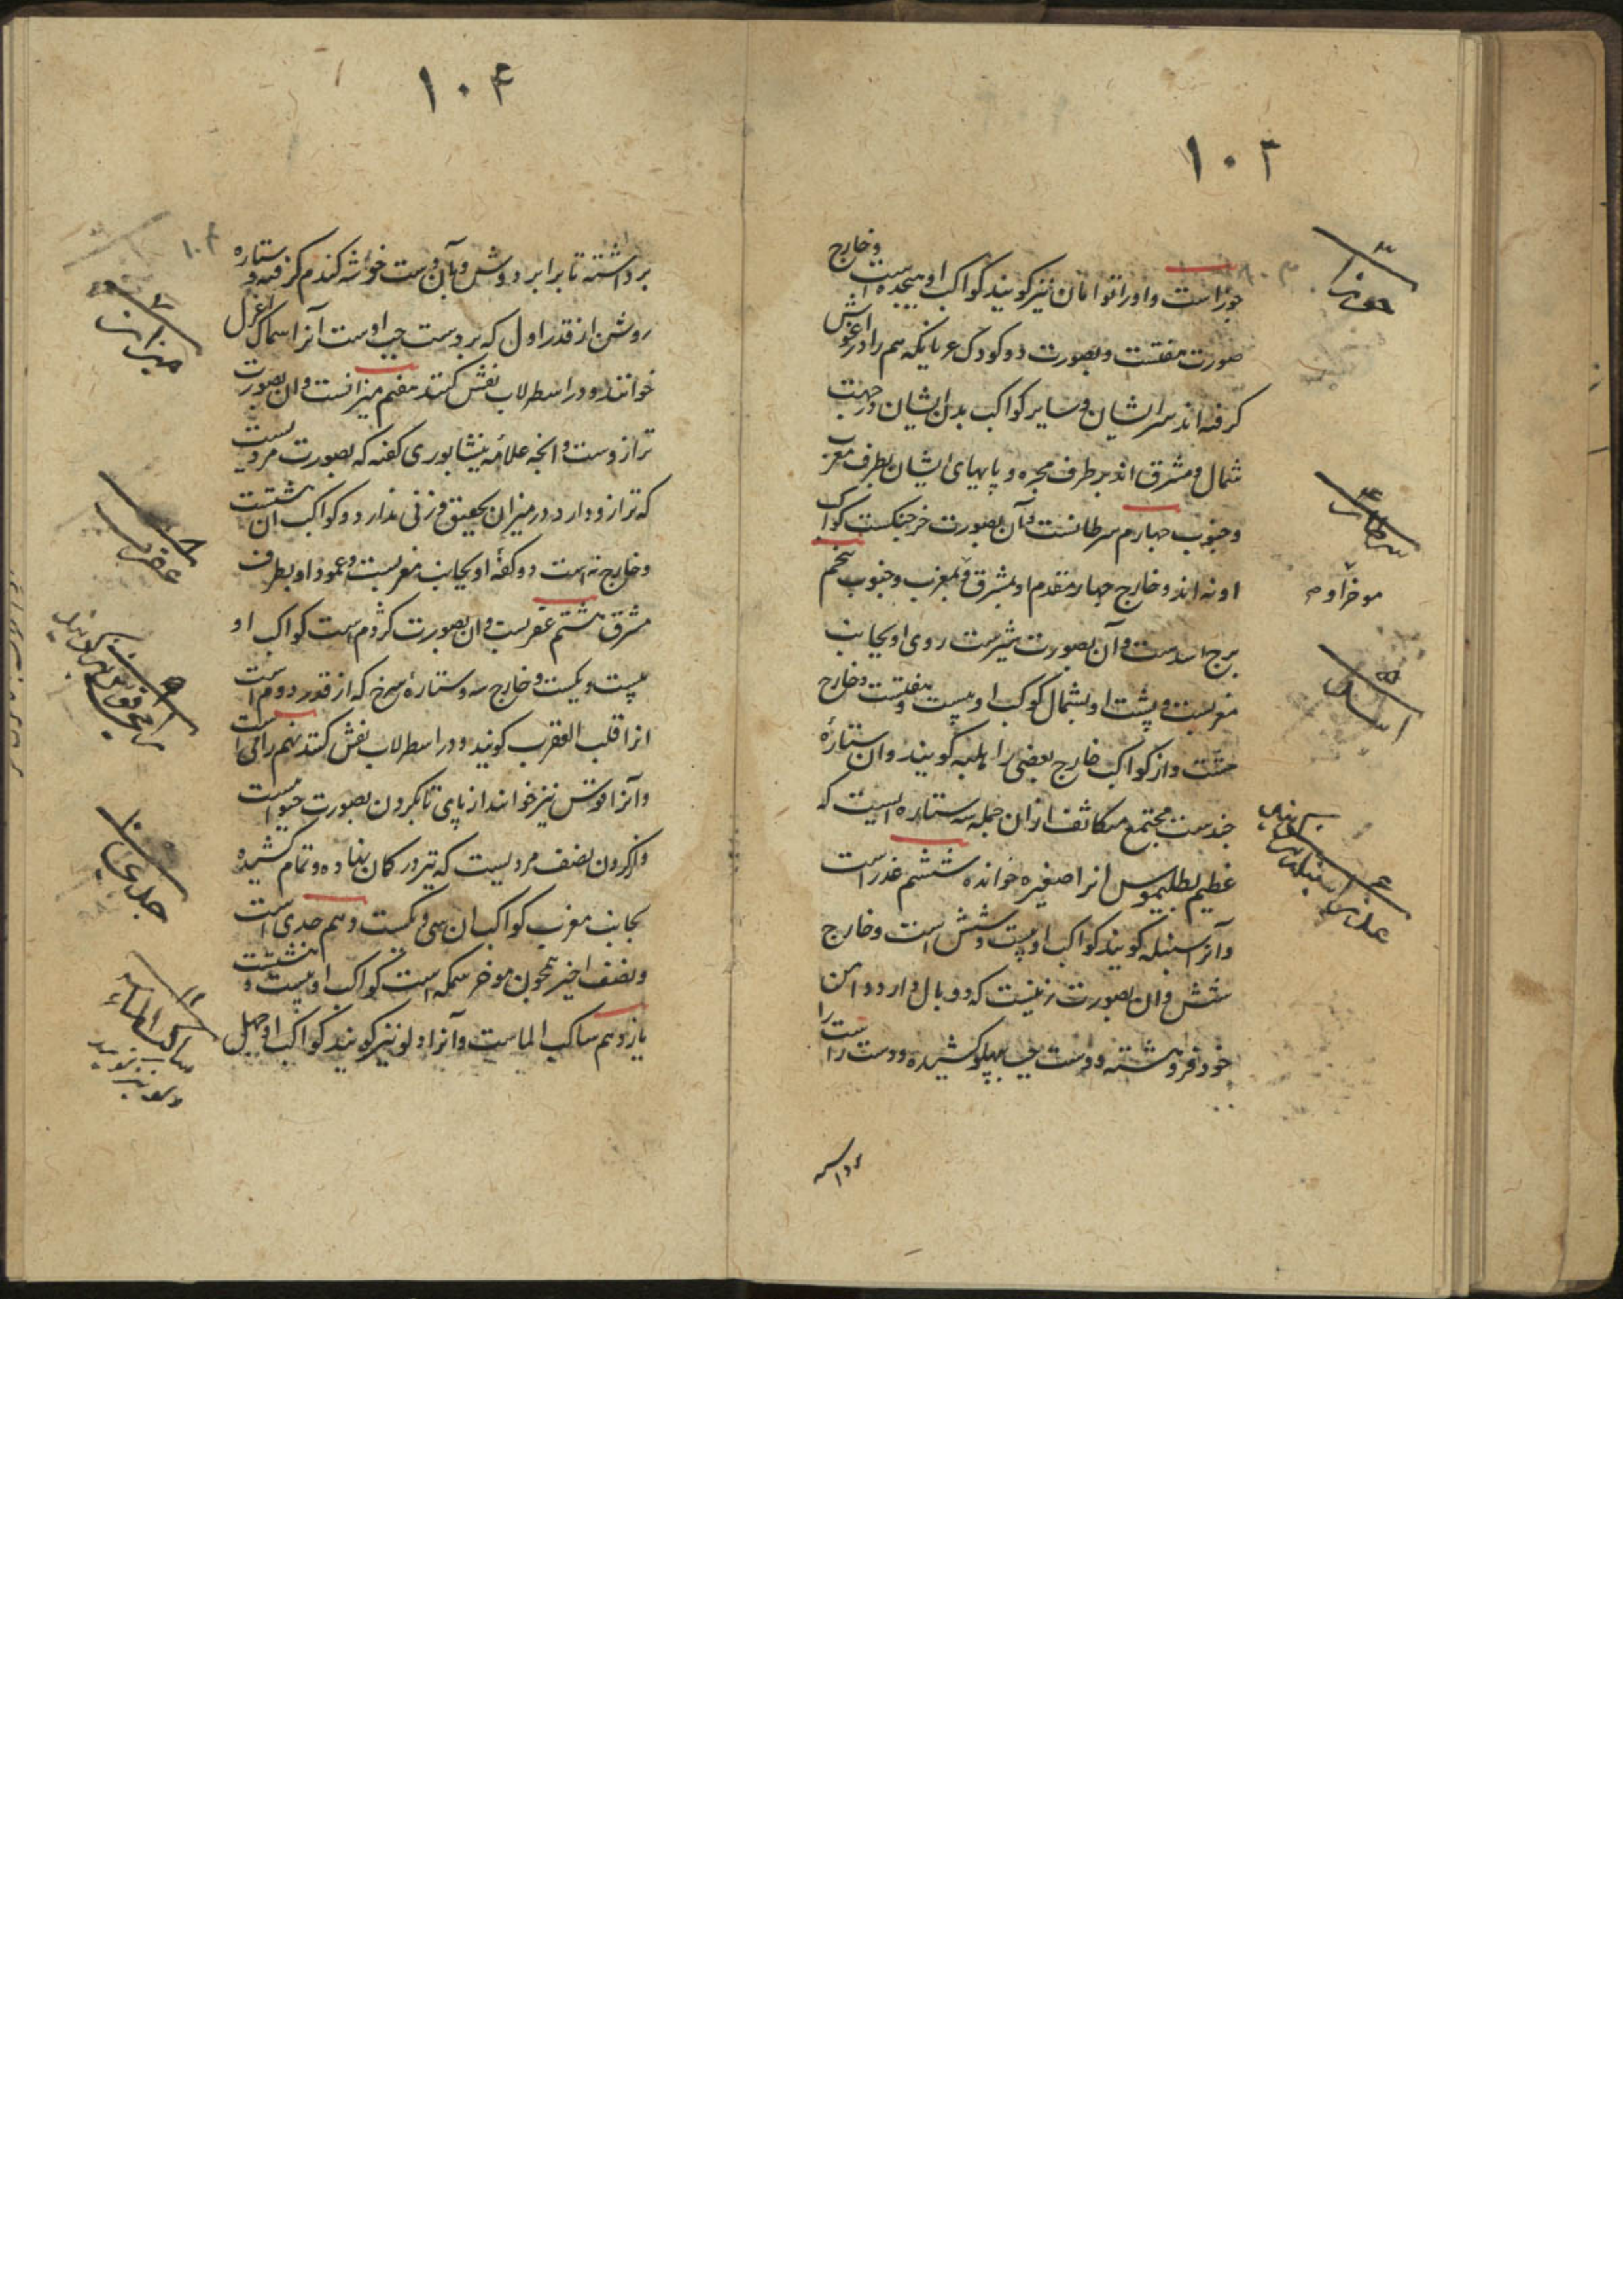 ۱۰۳
جوزا است و او را توامان نیز گویند کواکب او هیجده است و خارج
صورت هفتست و بصورت دو کودک عریانکه هم را در آغوش
گرفته اند سر ایشان و سایر کواکب بدن ایشان در جهت
شمال و مشرق اند بر طرف مجره و پایهای ایشان بطرف مغرب
و جنوب چهارم سرطانست و آن بصورت خرچنگست کواکب
او نه اند و خارج چهار مقدم او بمشرق و بمغرب و جنوب پنجم
برج اسدست و آن بصورت شیرست روی او بجانب
مغربست و پشت او بشمال کوکب او بیست و هفتست و خارج
هشت و از کواکب خارج بعضی را هلبه گویند و آن ستارهٔ
چندست مجتمع متکاثف از آن جمله سه ستاره ایست که
عظیم بطلیموس آنرا صغیره خوانده ششم عذراست
و آنرا سنبله گویند کواکب او بیست و شش است و خارج
شش و آن بصورت زنیست که دو بال دارد دامن
خود فروهشته و دست چپ بپهلو کشیده و دست راست را
برداشته
۳ جوزا
۴ سرطان
موخر او
۵ اسد
۶ عذرا سنبله نیز گویند
۱۰۴
برداشته تا برابر دوش و بآن دست خوشه گندم گرفته و ستاره
روشن از قدر اول که بر دست چپ اوست آنرا سماک اعزل
خوانند و در اسطرلاب نقش کنند هفتم میزانست و آن بصورت
ترازوست و آنچه علامه نیشابوری گفته که بصورت مردیست
که ترازو دارد در میزان بتحقیق وزنی ندارد و کواکب آن هشتست
و خارج نه است دو کفهٔ او بجانب مغربست و عمود او بطرف
مشرق هشتم عقربست و آن بصورت کژدم است کواکب او
بیست و یکست و خارج سه و ستارهٔ سرخ که از قدر دوم است
انرا قلب العقرب گویند و در اسطرلاب نقش کنند نهم رامی است
و آنرا قوس نیز خوانند از پای تا بگردن بصورت حیوانیست
و از گردن بنصف مردیست که تیر در کمان نهاده و تمام کشیده
بجانب مغرب کواکب آن سی و یکست دهم جدی است
و نصف اخیر همچون موخر سمکه است کواکب او بیست و هشتست
یازدهم ساکب الماست و آنرا دلو نیز گویند کواکب او چهل
۱۰۴
۷ میزان
۸ عقرب
۹ رامی قوس نیز گویند
۱۰ جدی
۱۱ ساکب الماء
دلو نیز گویند